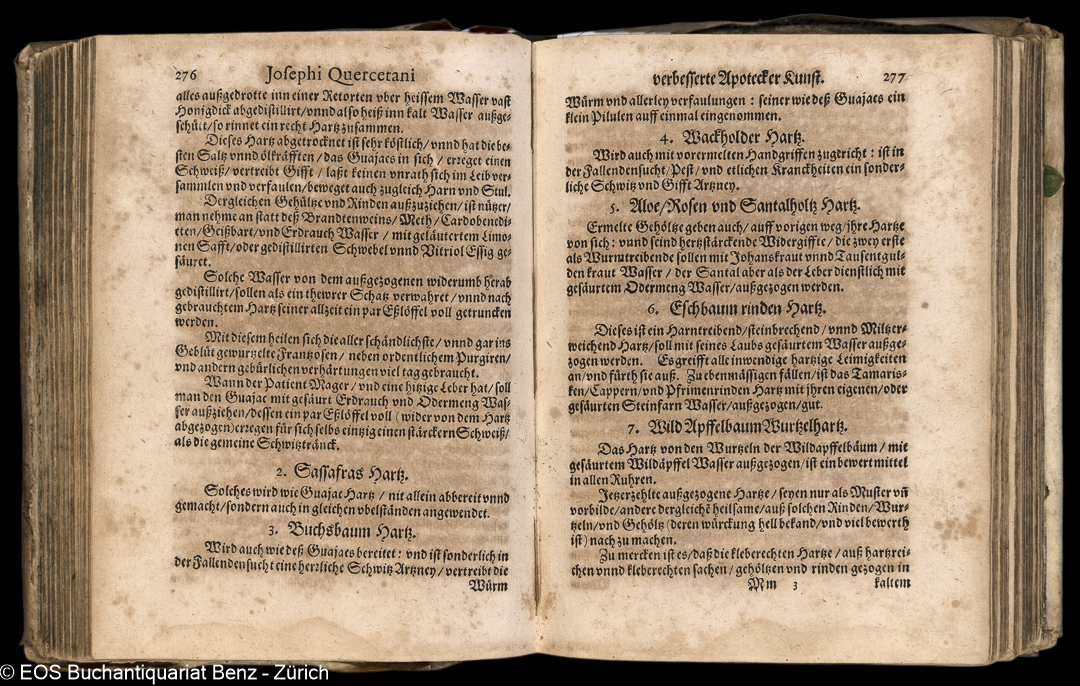 276 Josephi Quercetani
alles außgedrotte inn einer Retorten vber heissem Wasser vast
Honigdick abgedistillirt/vnnd also heiß inn kalt Wasser außge-
schüt/so rinnet ein recht Hartz zusammen.
Dieses Hartz abgetrocknet ist sehr köstlich/vnnd hat die be-
sten Saltz vnnd ölkräfften/das Guajacs in sich/erreget einen
Schweiß/vertreibt Gifft/laßt keinen vnrath sich im Leib ver-
sammlen vnd verfaulen/beweget auch zugleich Harn vnd Stul.
Dergleichen Gehültze vnd Rinden außzuziehen/ist nützer/
man nehme an statt deß Brandtenweins/Meth/Cardobenedi-
cten/Geißbart/vnd Erdrauch Wasser/mit geläutertem Limo-
nen Safft/oder gedistillirten Schwebel vnnd Vitriol Essig ge-
säuret.
Solche Wasser von dem außgezogenen widerumb herab
gedistillirt/sollen als ein thewrer Schatz verwahret/vnnd nach
gebrauchtem Hartz seiner allzeit ein par Eßlöffel voll getruncken
werden.
Mit diesem heilen sich die aller schändlichste/vnnd gar ins
Geblüt gewurtzelte Frantzosen/neben ordentlichem Purgiren/
vnd andern gebürlichen verhärtungen viel tag gebraucht.
Wann der Patient Mager/vnd eine hitzige Leber hat/soll
man den Guajac mit gesäurt Erdrauch vnd Odermeng Was-
ser außziehen/dessen ein par Eßlöffel voll (wider von dem Hartz
abgezogen)erregen für sich selbs eintzig einen stärckern Schweiß/
als die gemeine Schwitztränck.
2. Sassafras Hartz.
Solches wird wie Guajac Hartz/nit allein abbereit vnnd
gemacht/sondern auch in gleichen vbelständen angewendet.
3. Buchsbaum Hartz.
Wird auch wie deß Guajacs bereitet: vnd ist sonderlich in
der Fallendensucht eine herrliche Schwitz Artzney/vertreibt die
Würm
verbesserte Apotecker Kunst. 277
Würm vnd allerley verfaulungen: seiner wie deß Guajacs ein
klein Pilulen auff einmal eingenommen.
4. Wackholder Hartz.
Wird auch mit vorermelten Handgriffen zugericht: ist in
der Fallendensucht/Pest/vnd etlichen Kranckheiten ein sonder-
liche Schwitz vnd Gifft Artzney.
5. Aloe/Rosen vnd Santalholtz Hartz.
Ermelte Gehöltze geben auch/auff vorigen weg/jhre Hartze
von sich: vnnd seind hertzstärckende Widergiffte/die zwey erste
als Wurmtreibende sollen mit Johanskraut vnnd Tausentgul-
den kraut Wasser/der Santal aber als der Leber dienstlich mit
gesäurtem Odermeng Wasser/außgezogen werden.
6. Eschbaum rinden Hartz.
Dieses ist ein Harntreibend/steinbrechend/vnnd Miltzer-
weichend Hartz/soll mit seines Laubs gesäurtem Wasser außge-
zogen werden. Es greifft alle inwendige hartzige Leimigkeiten
an/vnd fürth sie auß. Zu ebenmässigen fällen/ist das Tamaris-
ken/Cappern/vnd Pfrimenrinden Hartz mit jhren eigenen/oder
gesäurten Steinfarn Wasser/außgezogen/gut.
7. Wild Apffelbaum Wurtzelhartz.
Das Hartz von den Wurtzeln der Wildapffelbäum/mit
gesäurtem Wildäpffel Wasser außgezogen/ist ein bewert mittel
in allen Ruhren.
Jetzerzehlte außgezogene Hartze/seyen nur als Muster vñ
vorbilde/andere dergleichẽ heilsame/auß solchen Rinden/Wur-
tzeln/vnd Gehöltz (deren würckung hell bekand/vnd viel bewerth
ist) nach zu machen.
Zu mercken ist es/daß die kleberechten Hartze/auß hartzrei-
chen vnnd kleberechten sachen/gehöltzen vnd rinden gezogen in
Mm 3 kaltem
© EOS Buchantiquariat Benz - Zürich